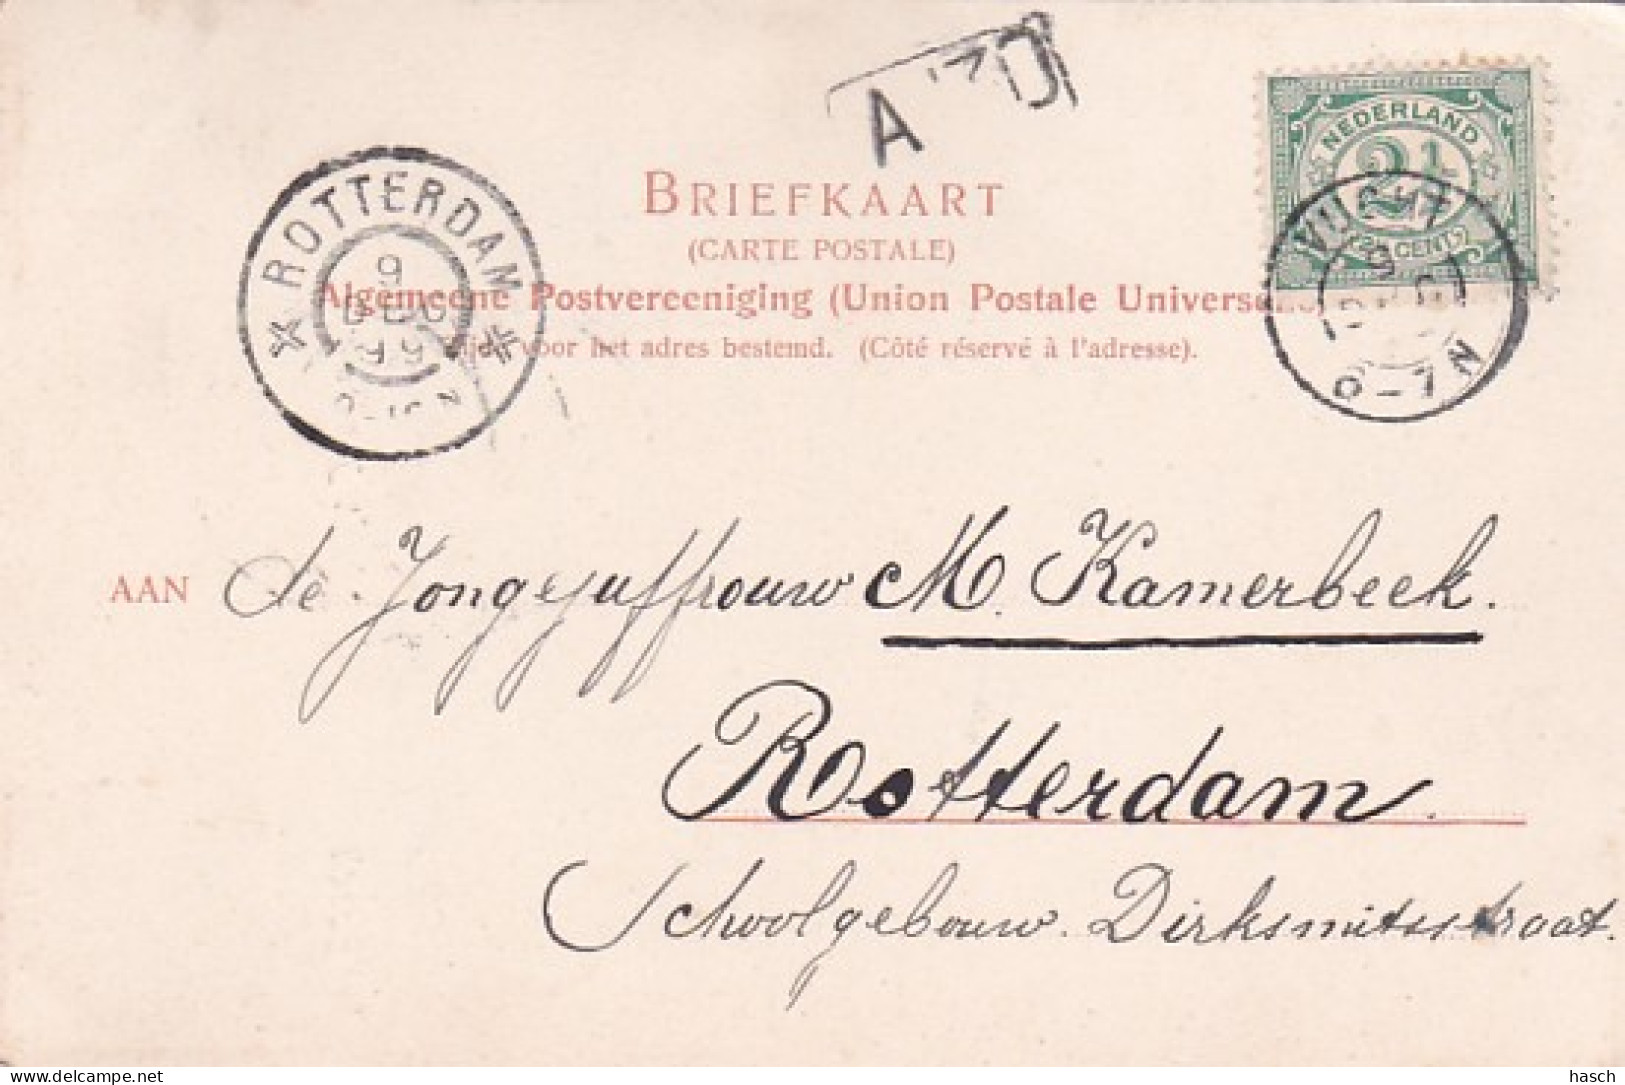 A
NEDERLAND
2½
(2½ CENT)
VUGHT
BRIEFKAART
(CARTE POSTALE)
Algemeene Postvereeniging (Union Postale Universelle)
Zijde voor het adres bestemd. (Côté réservé à l'adresse).
ROTTERDAM
9
DEC
99
6-7N
AAN de Jongejuffrouw M. Kamerbeek.
Rotterdam.
Schoolgebouw. Dirksmitsstraat.
www.delcampe.net
hasch